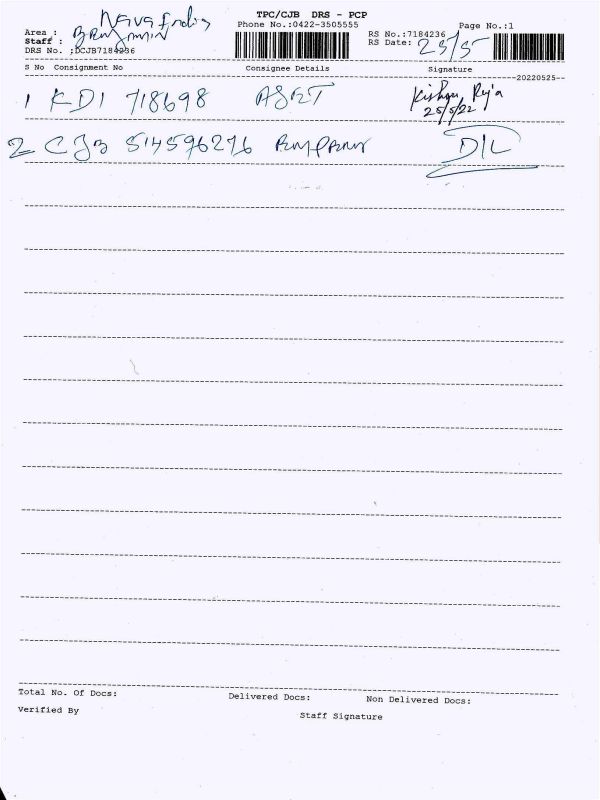 TPC/CJB DRS - PCP
Nava India
Phone No.:0422-3505555
Page No.:1
Area :
Staff : Benjamin
RS No.:7184236
RS Date: 25/5
DRS No. :DCJB7184236
S No Consignment No Consignee Details Signature
--20220525--
1 KDI 718698 ASET
25/5/22
2 CJB 514596276 D/L
Total No. Of Docs: Delivered Docs: Non Delivered Docs:
Verified By Staff Signature